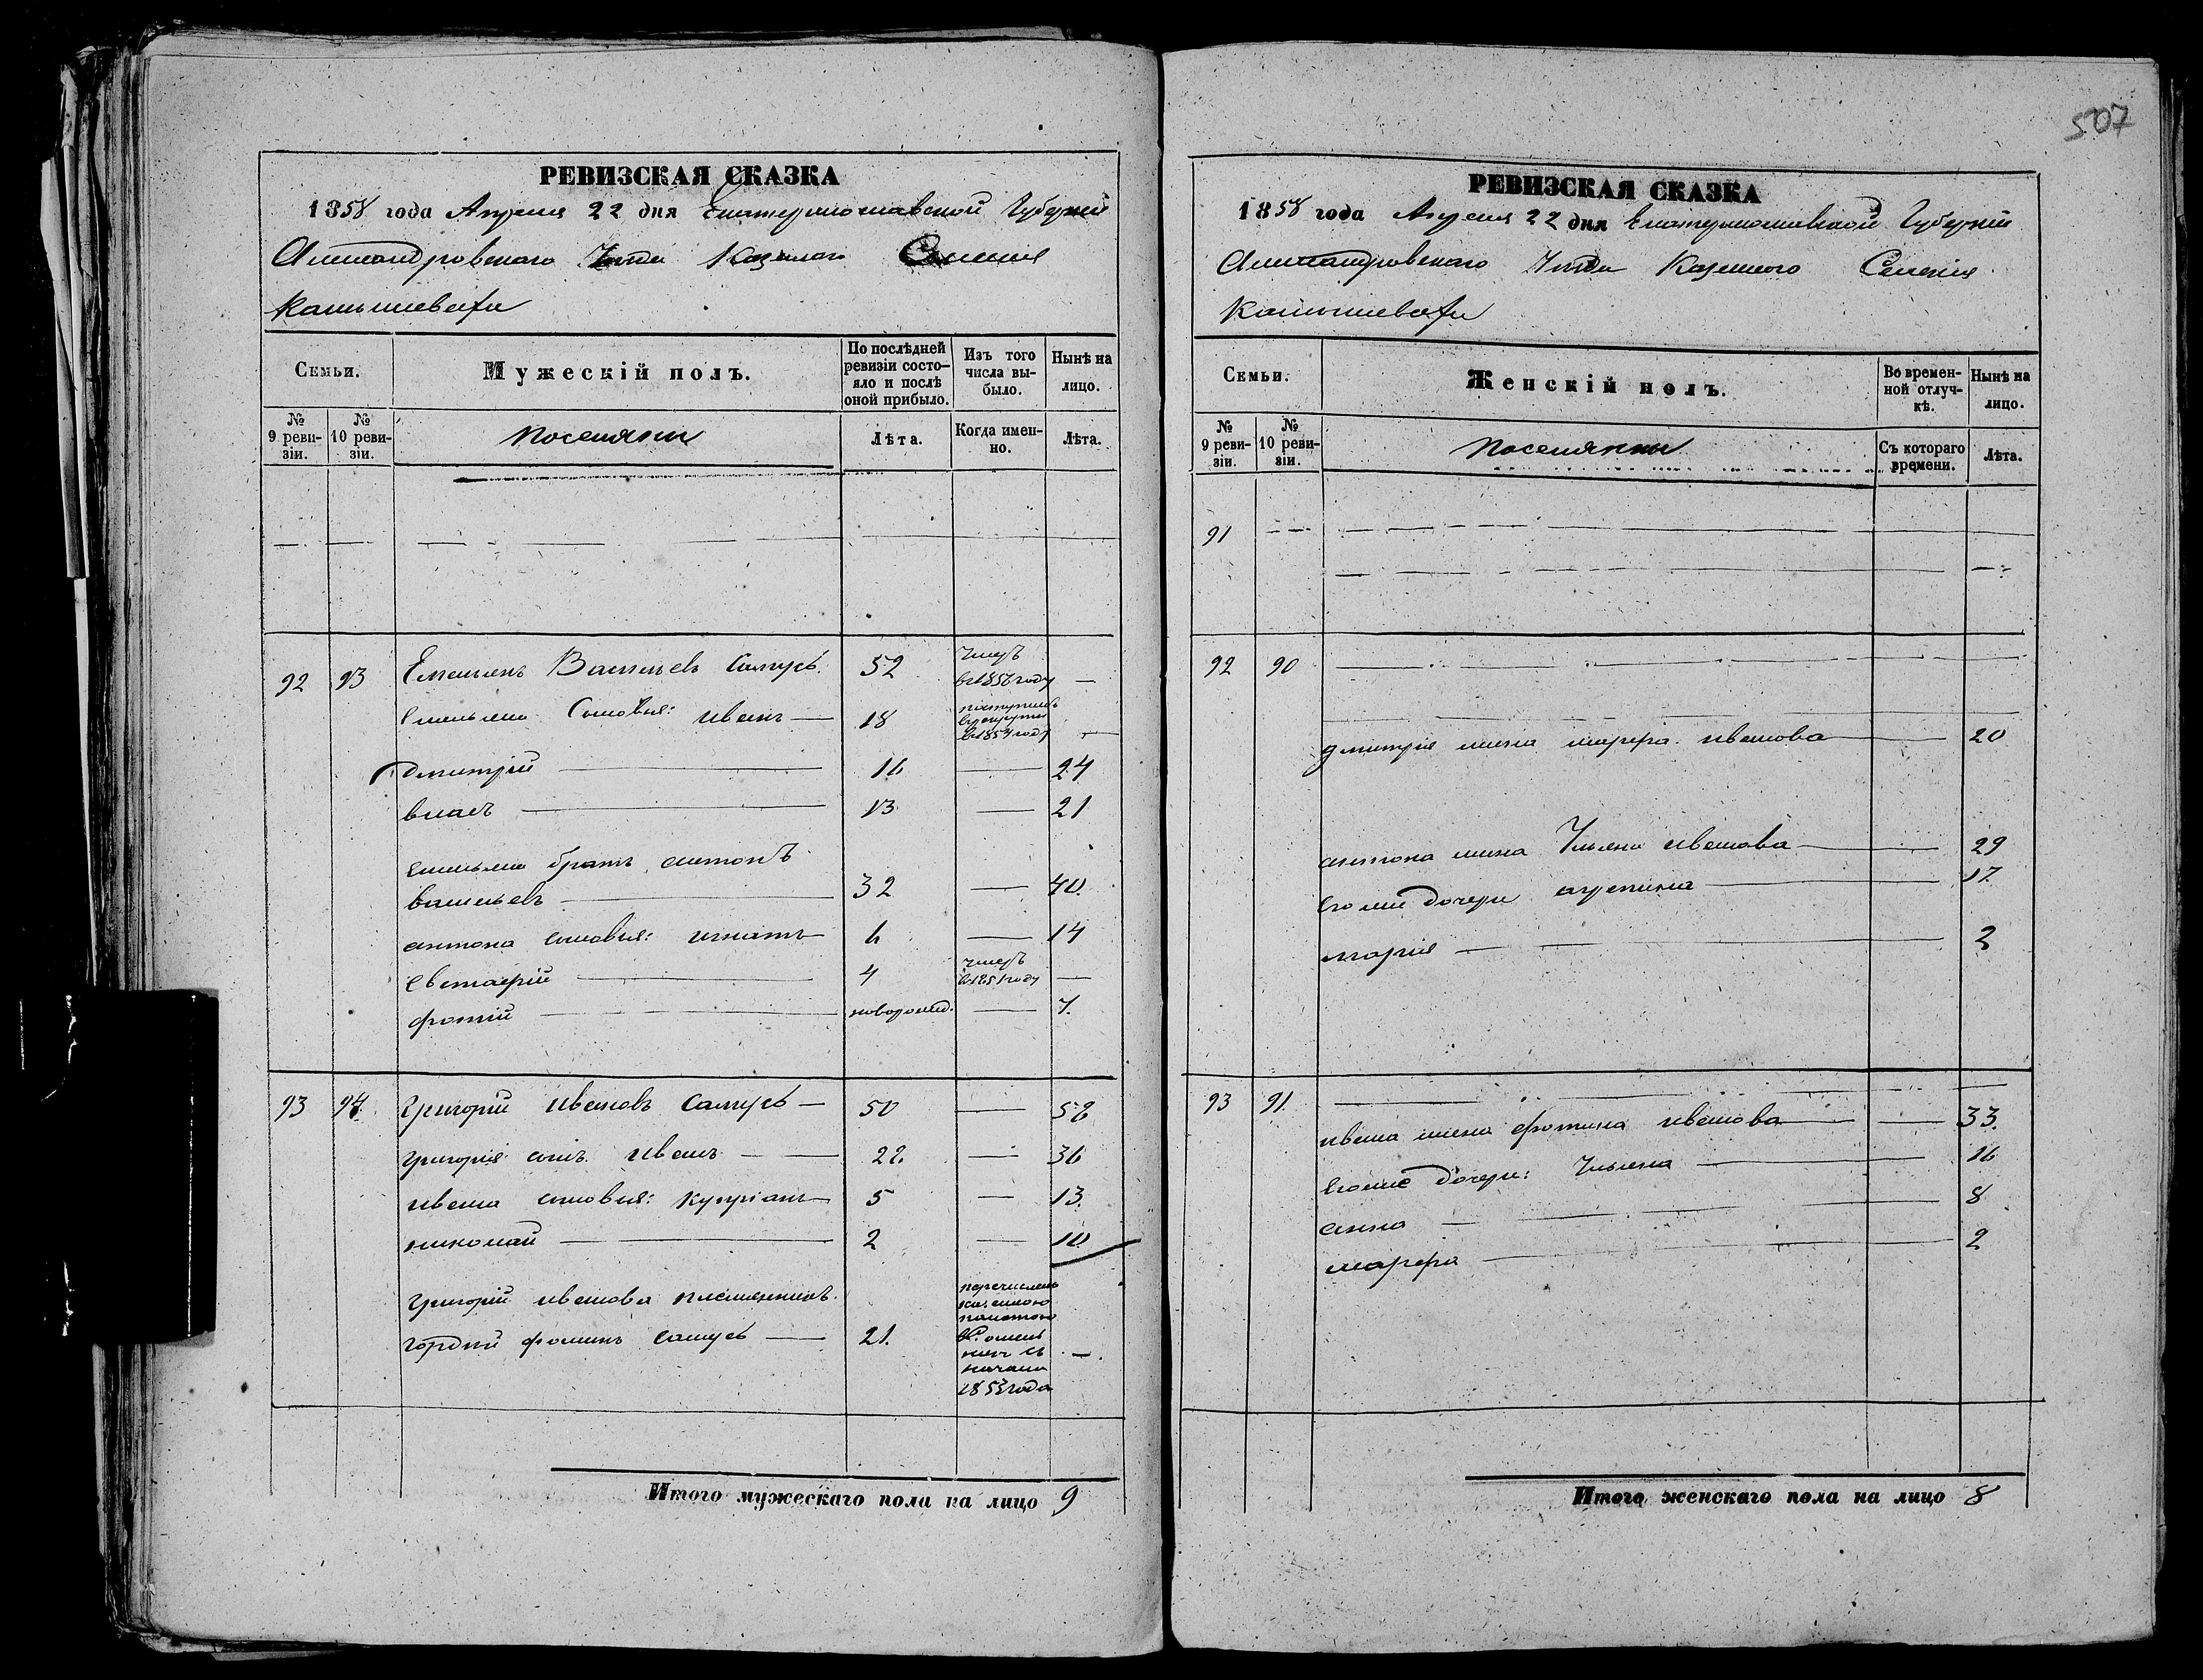 507
РЕВИЗСКАЯ СКАЗКА
1858 года Апреля 22 дня Екатеринославской Губерніи
Александровскаго Уезда Казеннаго Селенія
Камышевахи
Семьи.
Мужескій полъ.
По послѣдней ревизіи состояло и послѣ оной прибыло.
Изъ того числа выбыло.
Нынѣ на лицо.
№ 9 ревизіи.
№ 10 ревизіи.
Поселяни
Лѣта.
Когда именно.
Лѣта.
92 93 Емельянъ Васильевъ Самусь. 52 умеръ в 1856 году —
Емельяна Сыновья: иванъ — 18 поступилъ в рекруты в 1854 году —
Дмитрій — 16 — 24
власъ — 13 — 21
емельяна братъ антонъ
васильевъ — 32 — 40.
антона сыновья: игнатъ — 6 — 14
Евстафій — 4 умеръ в 1851 году —
фотій — новорожд. — 7.
93 94. Григорій ивановъ Самусь — 50 — 58
григорія сынъ иванъ — — 28. — 36
ивана сыновья: купріанъ — 5 — 13.
николай — 2 — 10.
григорій иванова племянникъ.
гордій фоминъ самусь — 21. перечисленъ казенною палатою начала 1853 года —.
Итого мужескаго пола на лицо 9
РЕВИЗСКАЯ СКАЗКА
1858 года Апреля 22 дня Екатеринославской Губерніи
Александровскаго Уезда Казеннаго Селенія
Камышевахи
Семьи.
Женскій полъ.
Во временной отлучкѣ.
Нынѣ на лицо.
№ 9 ревизіи.
№ 10 ревизіи.
Поселянки
Съ котораго времени.
Лѣта.
91 — —
92 90 —
дмитрія жена марфа иванова — 20
антона жена Ульяна иванова — 29
его же дочери агрепина — 17.
марія — 2
93 91. —
ивана жена фотина иванова — — 33.
его же дочери: Ульяна — 16
анна — 8
марфа — 2
Итого женскаго пола на лицо 8